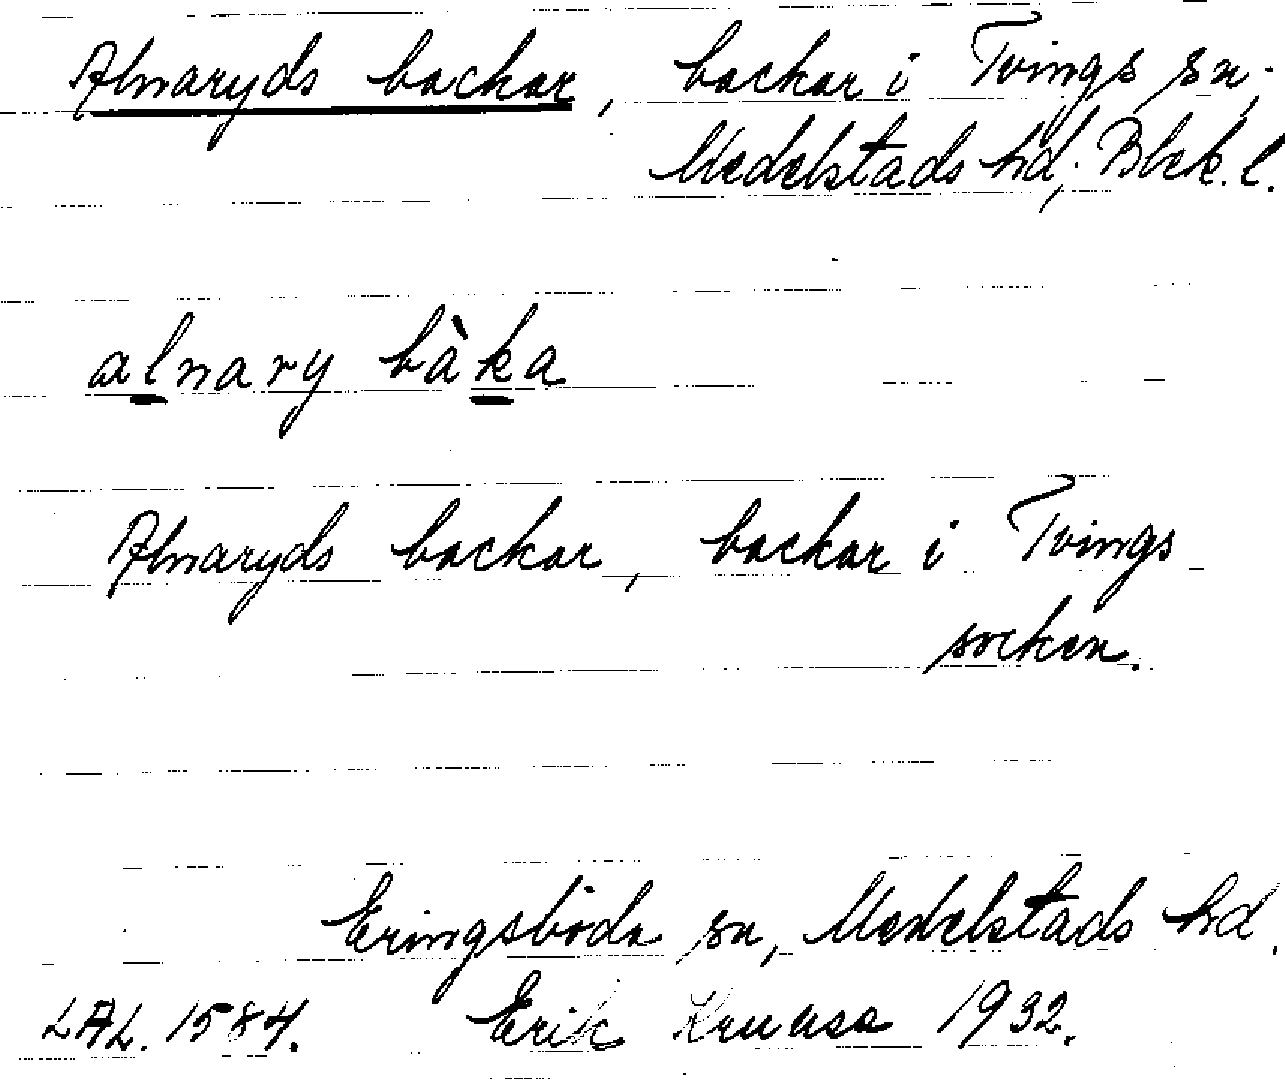 Alnaryds backar, backar i Tvings sn,
Medelstads hd, Blek. l.
alnary bàka
Alnaryds backar, backar i Tvings
socken.
Eringsboda sn, Medelstads hd.
LAL. 1584. Erik 1932.